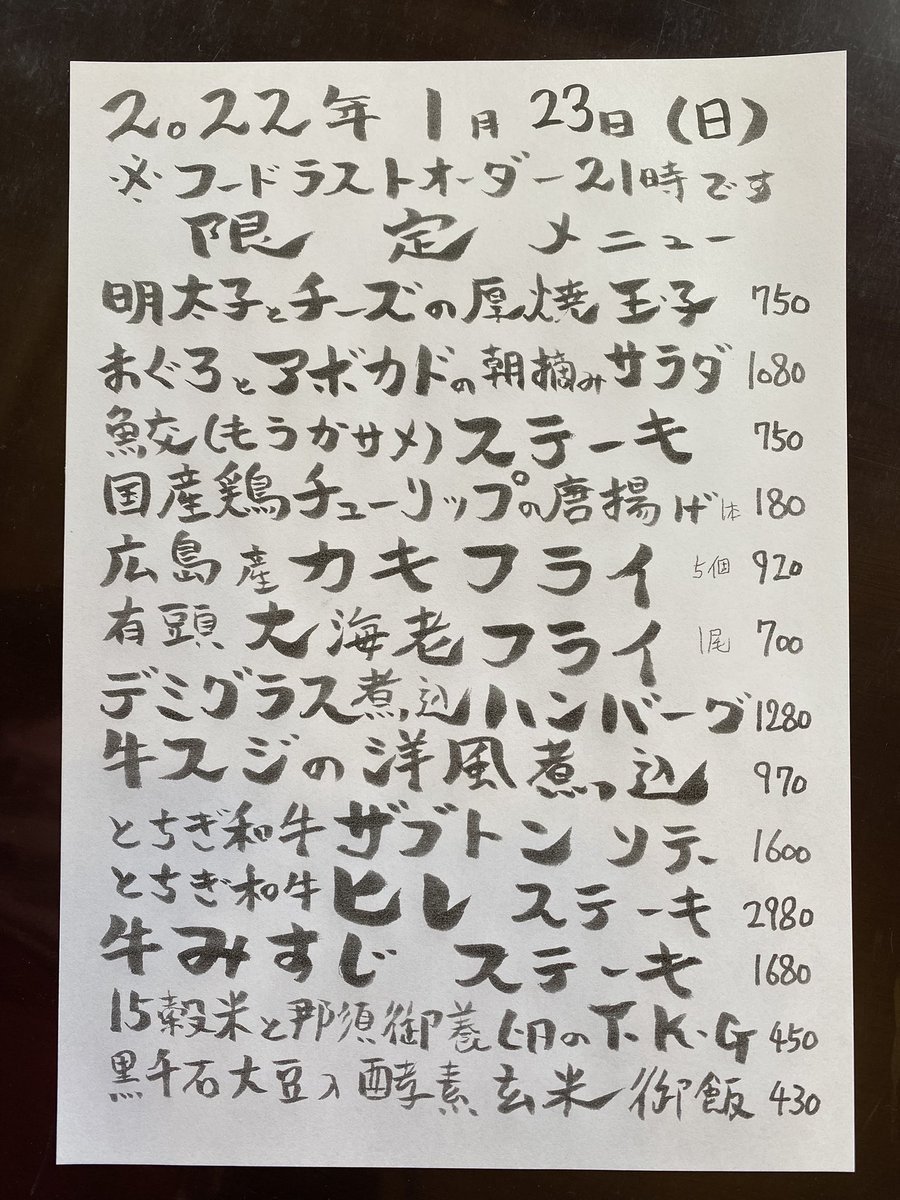 2022年1月23日(日)
※フードラストオーダー21時です
限定メニュー
明太子とチーズの厚焼玉子 750
まぐろとアボカドの朝摘みサラダ 1080
鮫(もうかサメ)ステーキ 750
国産鶏チューリップの唐揚げ 1本 180
広島産カキフライ 5個 920
有頭大海老フライ 1尾 700
デミグラス煮込ハンバーグ 1280
牛スジの洋風煮っ込 970
とちぎ和牛ザブトンソテー 1600
とちぎ和牛ヒレステーキ 2980
牛みすじステーキ 1680
15穀米と那須御養卵のT.K.G 450
黒千石大豆入酵素玄米御飯 430